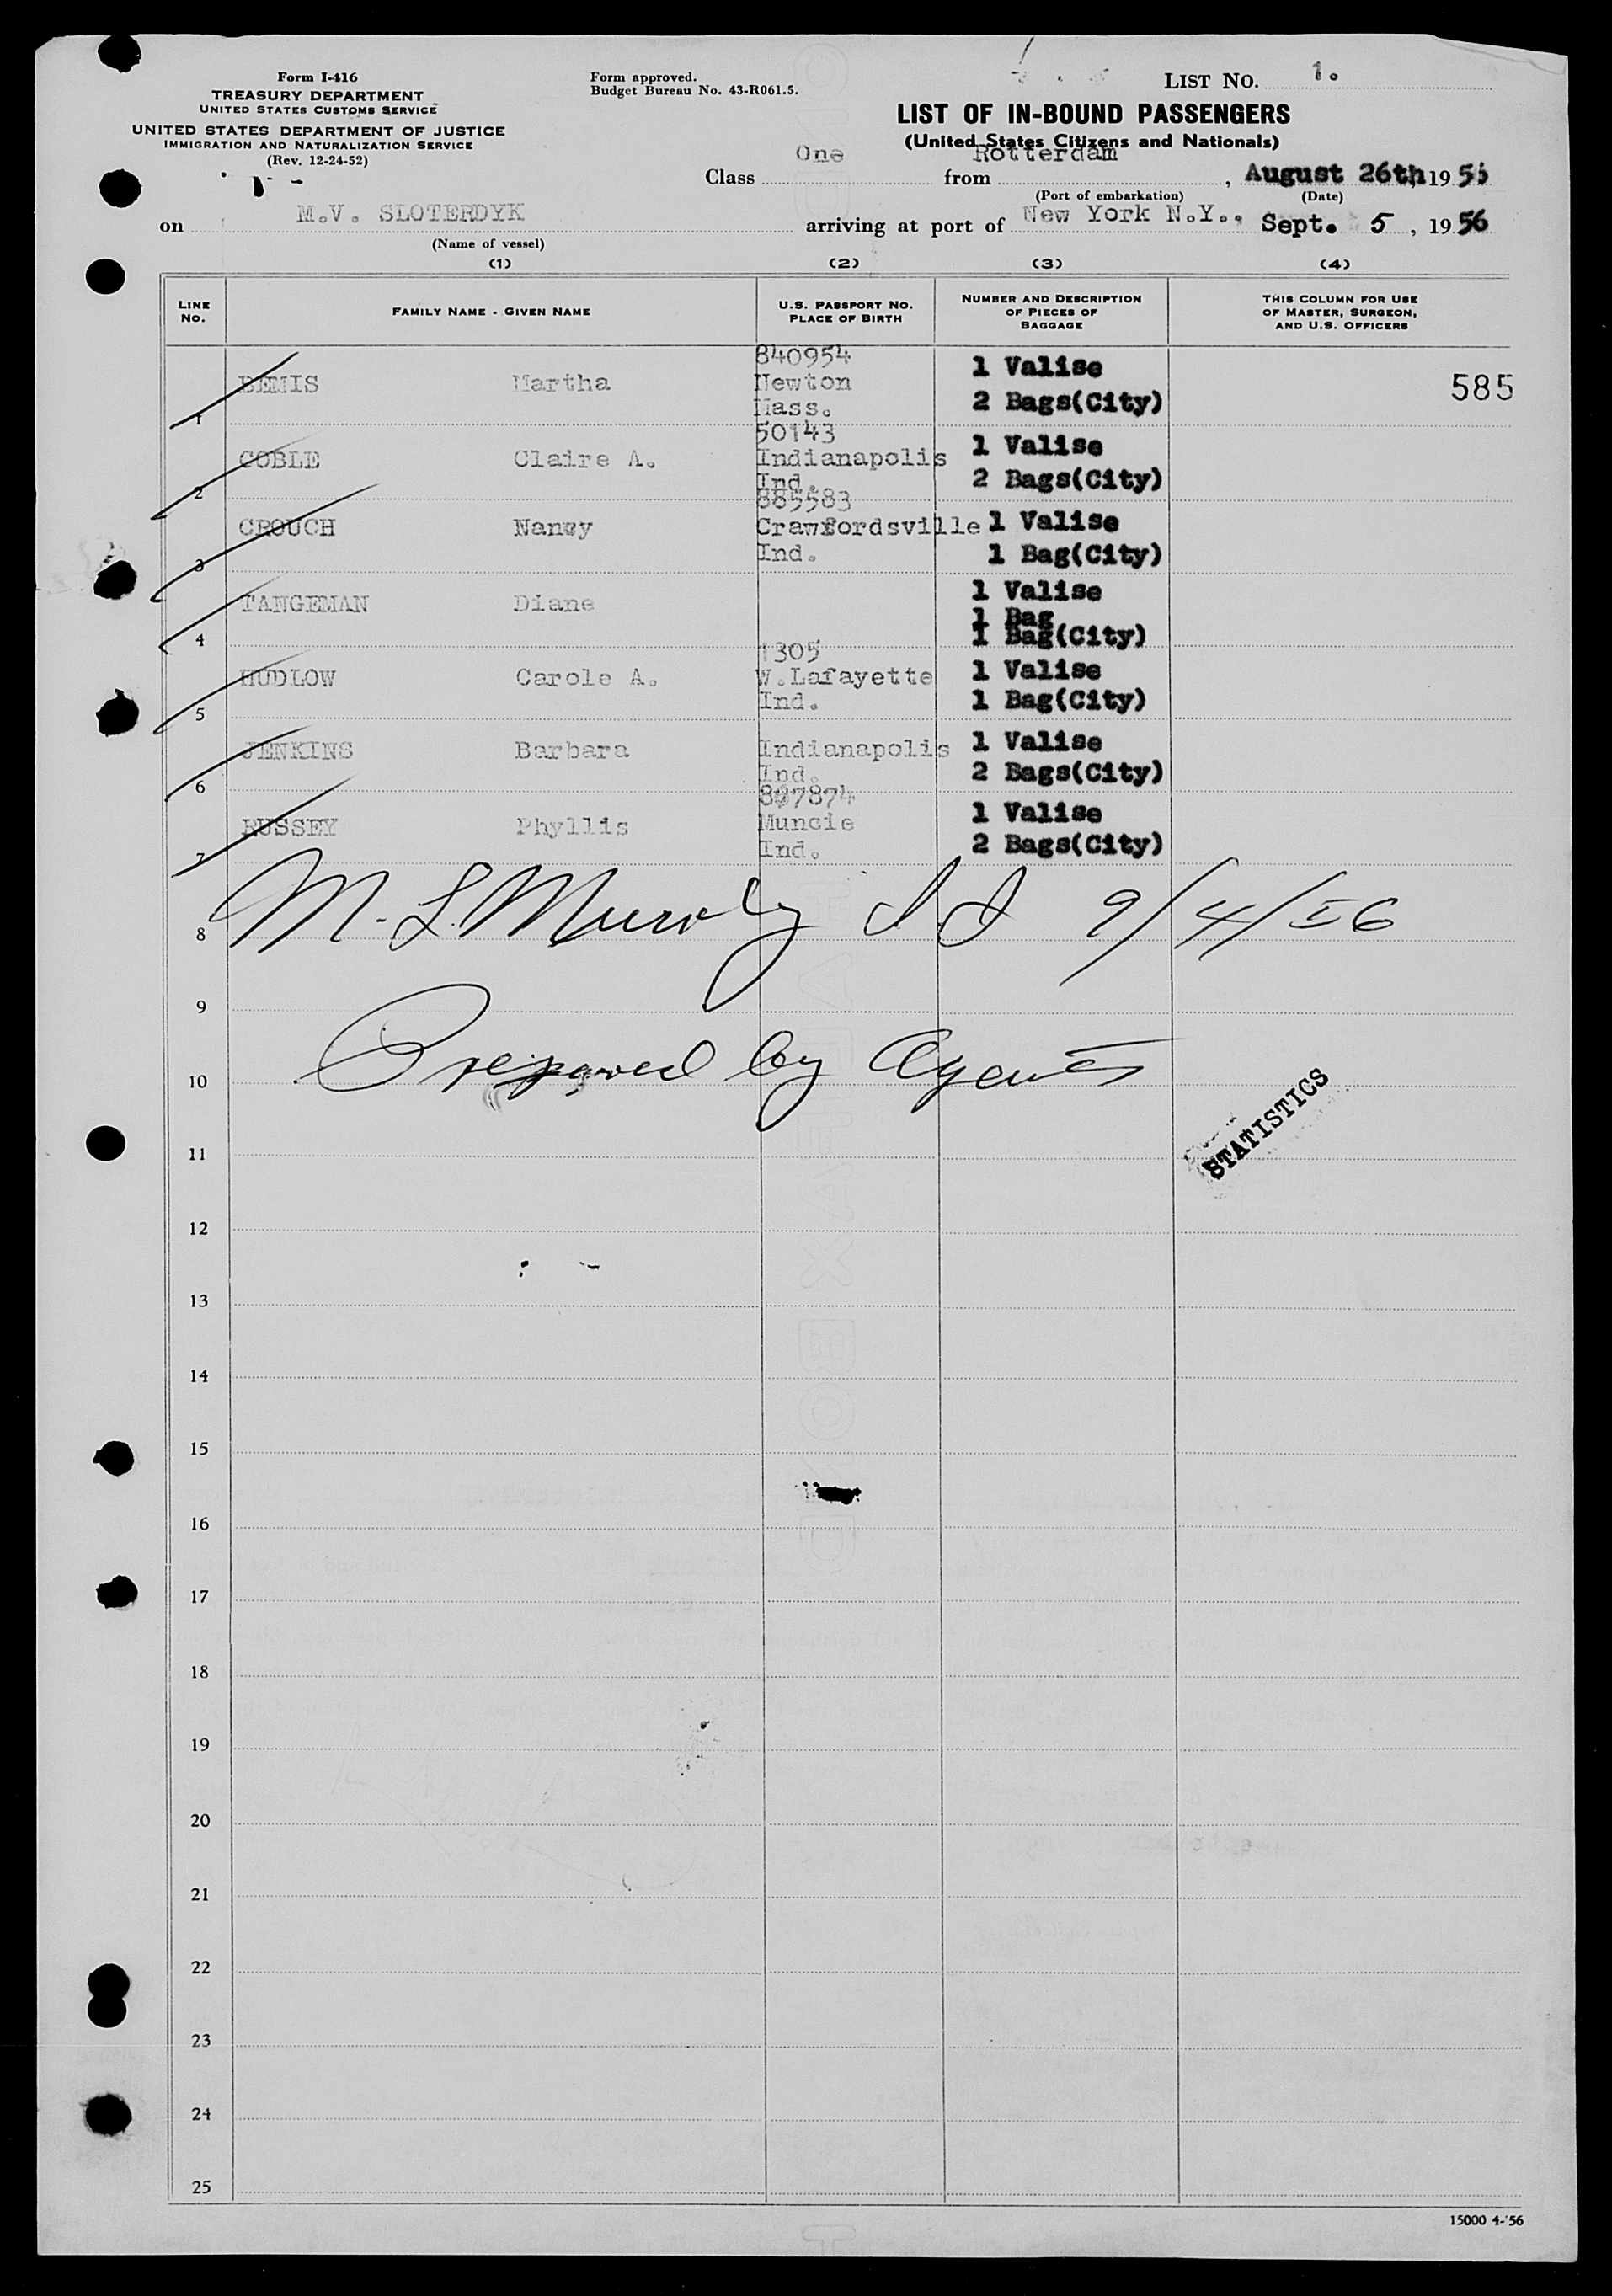 Form I-416
TREASURY DEPARTMENT
UNITED STATES CUSTOMS SERVICE
UNITED STATES DEPARTMENT OF JUSTICE
IMMIGRATION AND NATURALIZATION SERVICE
(Rev. 12-24-52)
Form approved.
Budget Bureau No. 43-R061.5.
LIST NO. 1.
LIST OF IN-BOUND PASSENGERS
(United States Citizens and Nationals)
Class One from Rotterdam, August 26th, 1956
(Port of embarkation) (Date)
on M.V. SLOTERDYK arriving at port of New York N.Y., Sept. 5, 1956
(Name of vessel)
(1) (2) (3) (4)
LINE NO. FAMILY NAME - GIVEN NAME U.S. PASSPORT NO. PLACE OF BIRTH NUMBER AND DESCRIPTION OF PIECES OF BAGGAGE THIS COLUMN FOR USE OF MASTER, SURGEON, AND U.S. OFFICERS
840954
1 Valise
BEMIS Martha Newton 585
Mass. 2 Bags(City)
1
50143
1 Valise
COBLE Claire A. Indianapolis
Ind. 2 Bags(City)
2
885583
CROUCH Nancy Crawfordsville 1 Valise
Ind. 1 Bag(City)
3
1 Valise
TANGEMAN Diane
1 Bag
4 1 Bag(City)
1305
HUDLOW Carole A. W.Lafayette 1 Valise
Ind. 1 Bag(City)
5
JENKINS Barbara Indianapolis 1 Valise
Ind. 2 Bags(City)
6
807874
1 Valise
BUSSEY Phyllis Muncie
Ind. 2 Bags(City)
7
8 M. L. Murphy 9/4/56
9
10 Prepared by Agents
STATISTICS
11
12
13
14
15
16
17
18
19
20
21
22
23
24
25
15000 4-'56